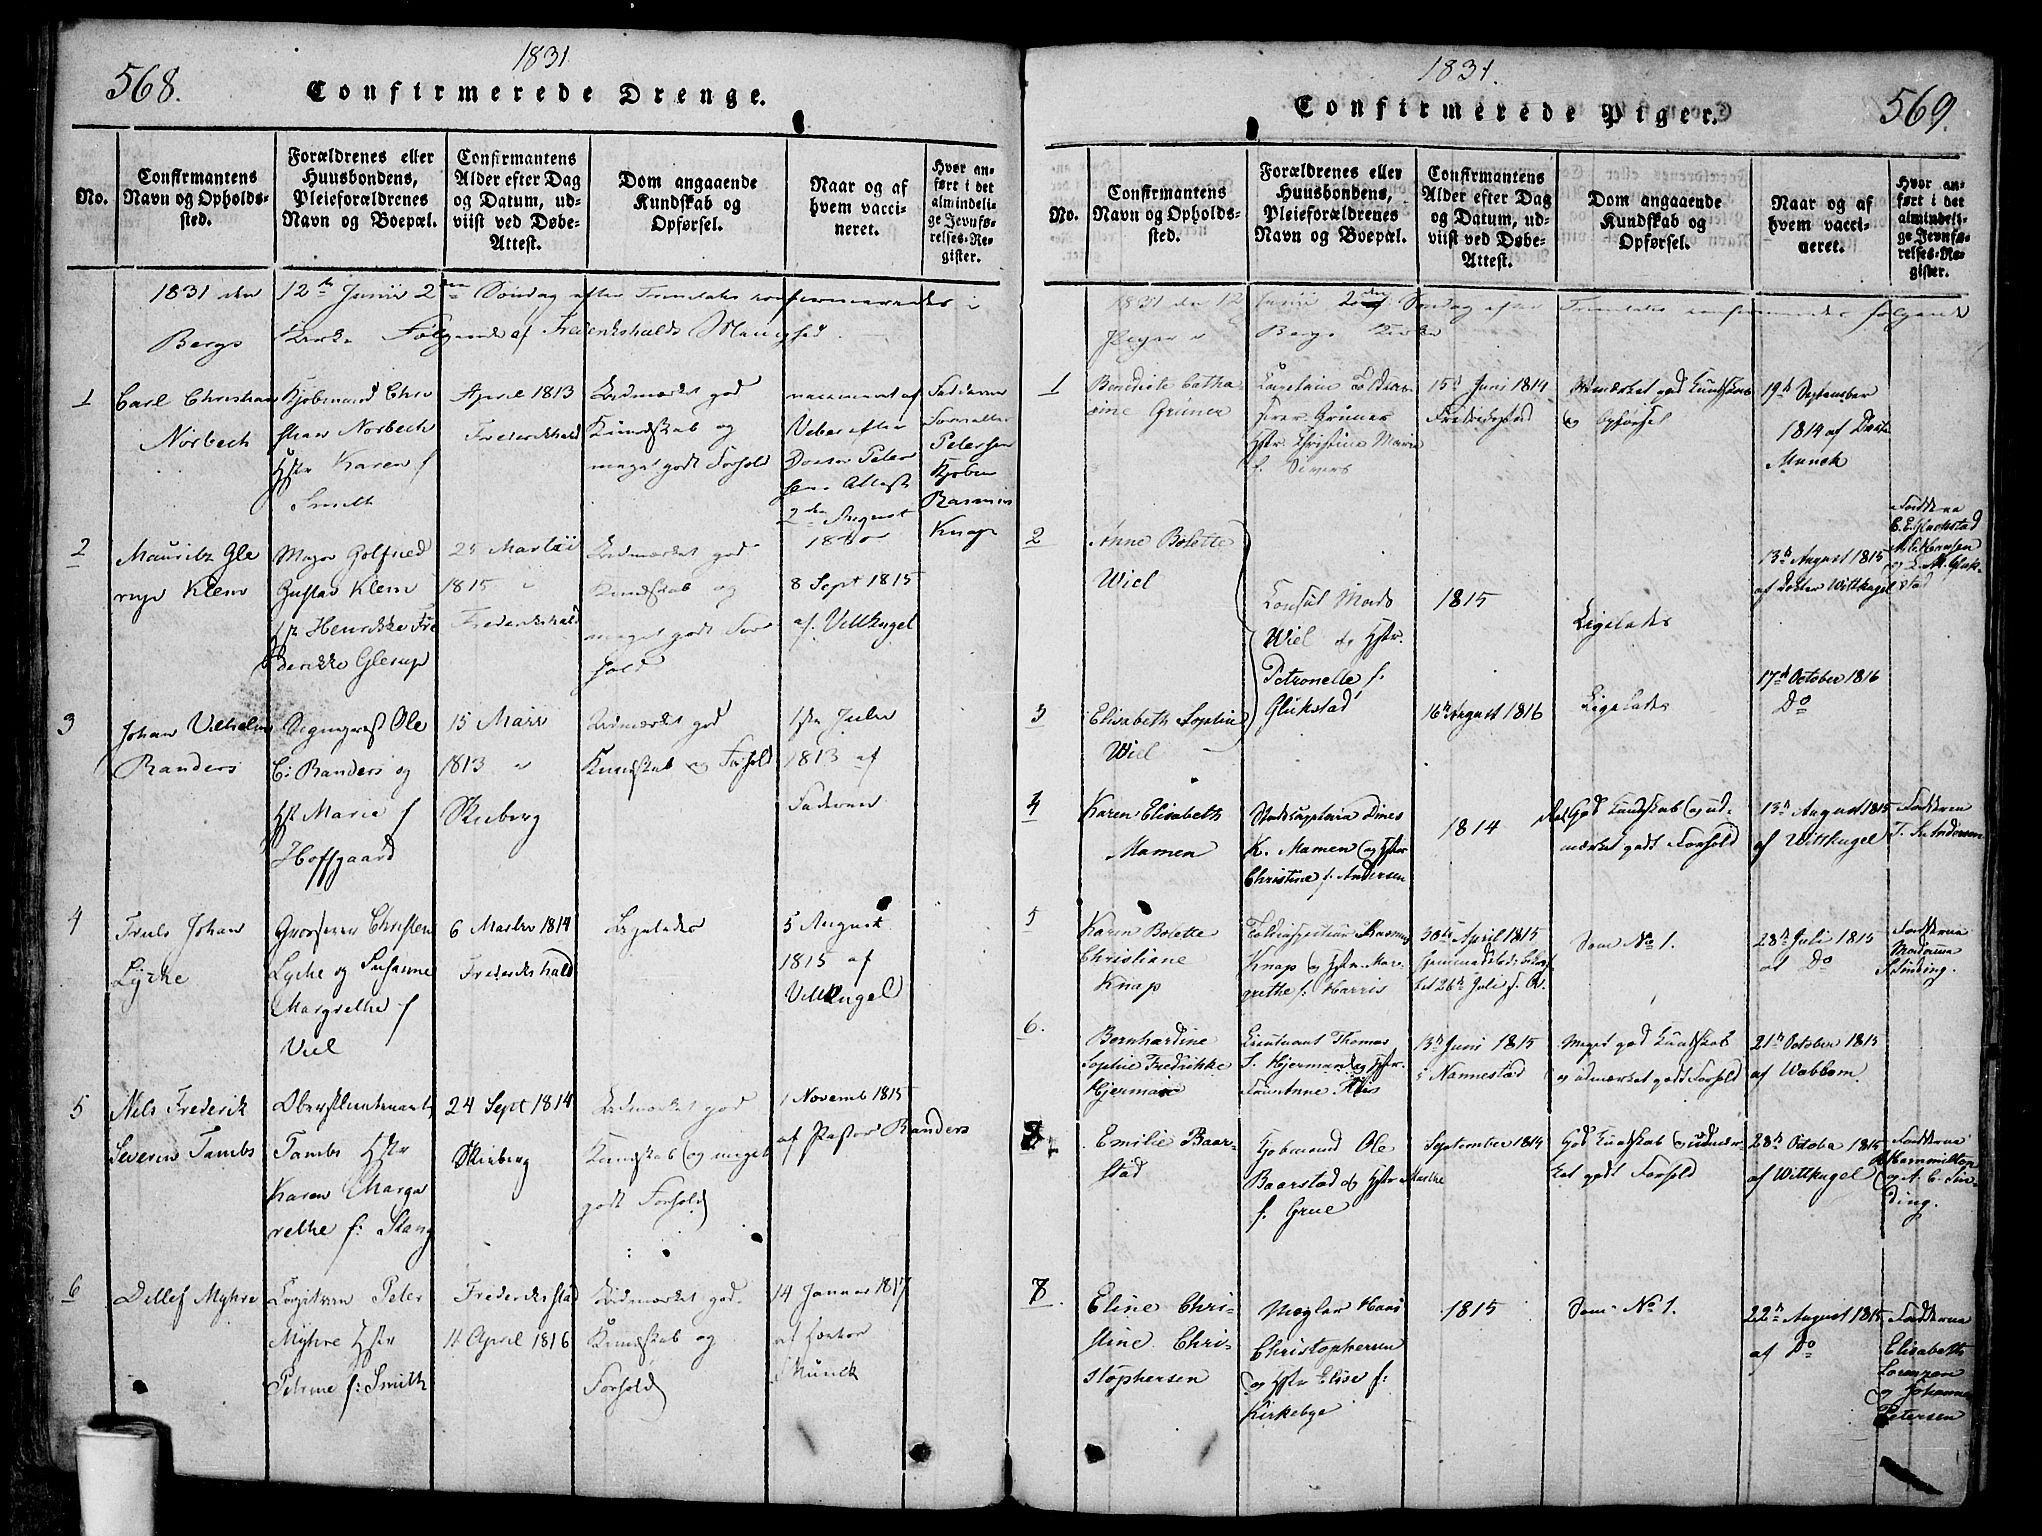 1831
568.
Confirmerede Drenge.
No.
Confirmantens
Navn og Opholds-
sted.
Forældrenes eller
Huusbondens,
Pleieforældrenes
Navn og Boepæl.
Confirmantens
Alder efter Dag
og Datum, ud-
viist ved Døbe-
Attest.
Dom angaaende
Kundskab og
Opførsel.
Naar og af
hvem vacci-
neret.
Hvor an-
ført i det
almindeli-
ge Jevnfø-
relses-Re-
gister.
1831 den 12te Junii 2den Søndag efter Trinitatis confirmeredes i
Bergs Kirke Følgende af Frederikshalds Menighed.
1
Carl Christian
Norbech
Kjøbmand Chri
stian Norbech
Hstr Karen f
Smith
April 1813
Frederikshald
Udmærket god
Kundskab og
meget godt Forhold
vaccineret af
Veber efter
Doctor Peter
sens Attest
2den August
Fadderne
Petersen
Rasmus
Knap
2
Mauritz Gle
rup Klem
Major Gotfried
Gustav Klem
Hst Henrikke Fre
derikke Glerup
25 Martii
1815
Frederikshald
Udmærket god
Kundskab og
meget godt For
hold
8 Sept 1815
af Vittkugel
3
Johan Vilhelm
Randers
Sogneprest Ole
C: Randers og
Hst Maria f
Hoffgaard
15 Marts
1813
Skieberg
Udmærket god
Kundskab og Forhold
1ste Julii
1813 af
Faderen
4
Truls Johan
Lycke
Grosserer Christen
Lycke og Susanne
Margrethe f
Viel
6 Marts 1814
Frederikshald
Ligeledes
5 August
1815 af
Vittkugel
5
Nils Frederik
Severin Tambs
Oberstlieutenant
Tambs Hstr
Karen Marga
rethe f: Stang
24 Sept 1814
Skieberg
Udmærket god
Kundskab og meget
godt Forhold
1 Novemb 1815
af Pastor Randers
6
Detlef Myhre
Capitain Peter
Myhre Hstr
Petrine f: Smith
Frederikstad
11 April 1816
Udmærket god
Kundskab og
Forhold
14 Januar 1817
af Doctor
Munck
1831.
569.
Confirmerede Piger.
No.
Confirmantens
Navn og Opholds-
sted.
Forældrenes eller
Huusbondens,
Pleieforældrenes
Navn og Boepæl.
Confirmantens
Alder efter Dag
og Datum, ud-
viist ved Døbe-
Attest.
Dom angaaende
Kundskab og
Opførsel.
Naar og af
hvem vacci-
neret.
Hvor an-
ført i det
almindeli-
ge Jevnfø-
relses-Re-
gister.
1831 den 12 Junii 2den Søndag efter Trinitatis confirmeredes følgende
Piger i Bergs Kirke
1
Benedicte Catha
rine Grüner
Capitain Toldkas-
serer Grüner
Hstr. Christine Marie
f. Sivers
15d Juni 1814
Fredrikstad
Udmærket god Kundskab
og Opførsel
19d September
1814 af Doctor
Munck
2
Anne Bolette
Wiel
Consul Mads
Wiel og Hstr.
Petronelle f.
Glükstad
1815
Ligeledes
13d August 1815
af Doctor Wittkugel
Fadderne
C. E. Glückstad
3
Elisabeth Sophie
Wiel
16d August 1816
Ligeledes
17d October 1816
Do
4
Karen Elisabeth
Mamen
Stadscapitain Dines
K. Mamen og Hstr
Christine f. Andersen
1814
God Kundskab og ud-
mærket godt Forhold
13d August 1815
af Wittkugel
Fadderen
Andersen
5
Karen Bolette
Christiane
Knap
Toldinspecteur Rasmus
Knap og Hstr. Mar-
grethe f. Harris
30te April 1815
Som No 1.
28d Juli 1815
af Do
Fadderne
Madame
Sinding.
6.
Bernhardine
Sophie Fredrikke
Hjerman
Lieutnant Thomas
S. Hjerman og Hstr.
13d Juni 1815
i Nannestad
Meget god Kundskab
og udmærket godt Forhold
21d October 1815
af Wabbom.
7
Emilie Baar-
stad
Kjøbmand Ole
Baarstad og Hstr Marthe
f. Grue
September 1814
God Kundskab og udmær-
ket godt Forhold
28d Octobr 1815
af Wittkugel
Fadderne
og A. C. Sin-
ding.
8
Eline Chri-
stine Chri-
stophersen
Mægler Hans
Christophersen
og Hstr Elise f:
Kirkebye
1815
Som No 1.
22d August 1815
af Do
Fadderne
Elisabeth
Lorenzen
og Johanna
Petersen